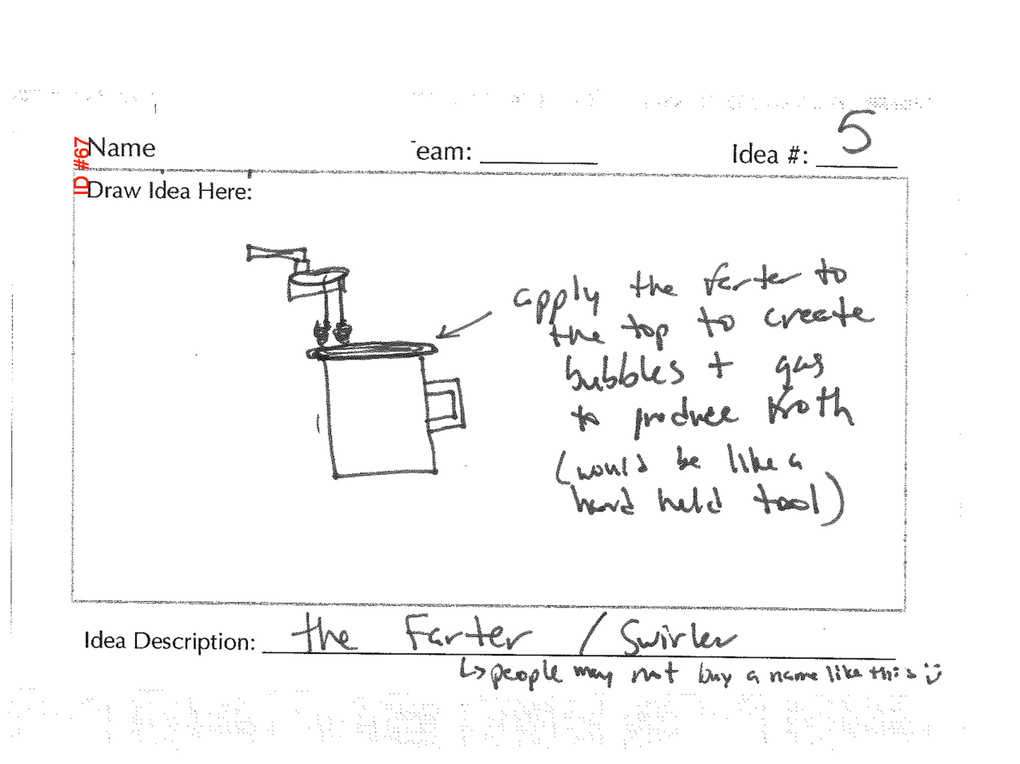 ID #67
Name eam: Idea #: 5
Draw Idea Here:
apply the farter to
the top to create
bubbles + gas
to produce froth
(would be like a
hand held tool)
Idea Description: the Farter / Swirler
↳ people may not buy a name like this :)